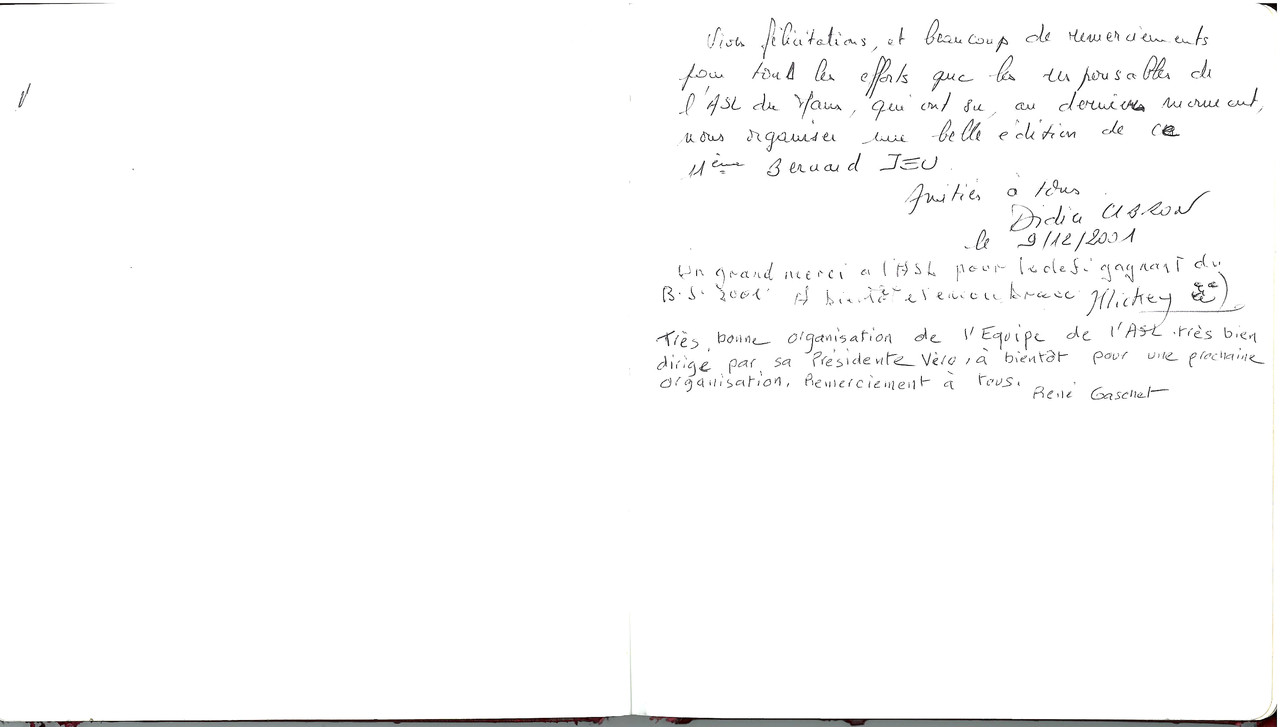 Vives félicitations, et beaucoup de remerciements
pour tous les efforts que les responsables de
l'ASL du Mans, qui ont su, au dernier moment,
nous organiser une belle édition de ce
11ème Bernard JEU
Amitiés à tous
Didier
le 9/12/2001
Un grand merci a l'ASL pour le defi gagnant du
B.J. 2001 A bientôt et Mickey
Très bonne organisation de l'Equipe de l'ASL très bien
dirigé par sa Présidente Véro, à bientôt pour une prochaine
organisation. Remerciement à tous.
René Gaschet